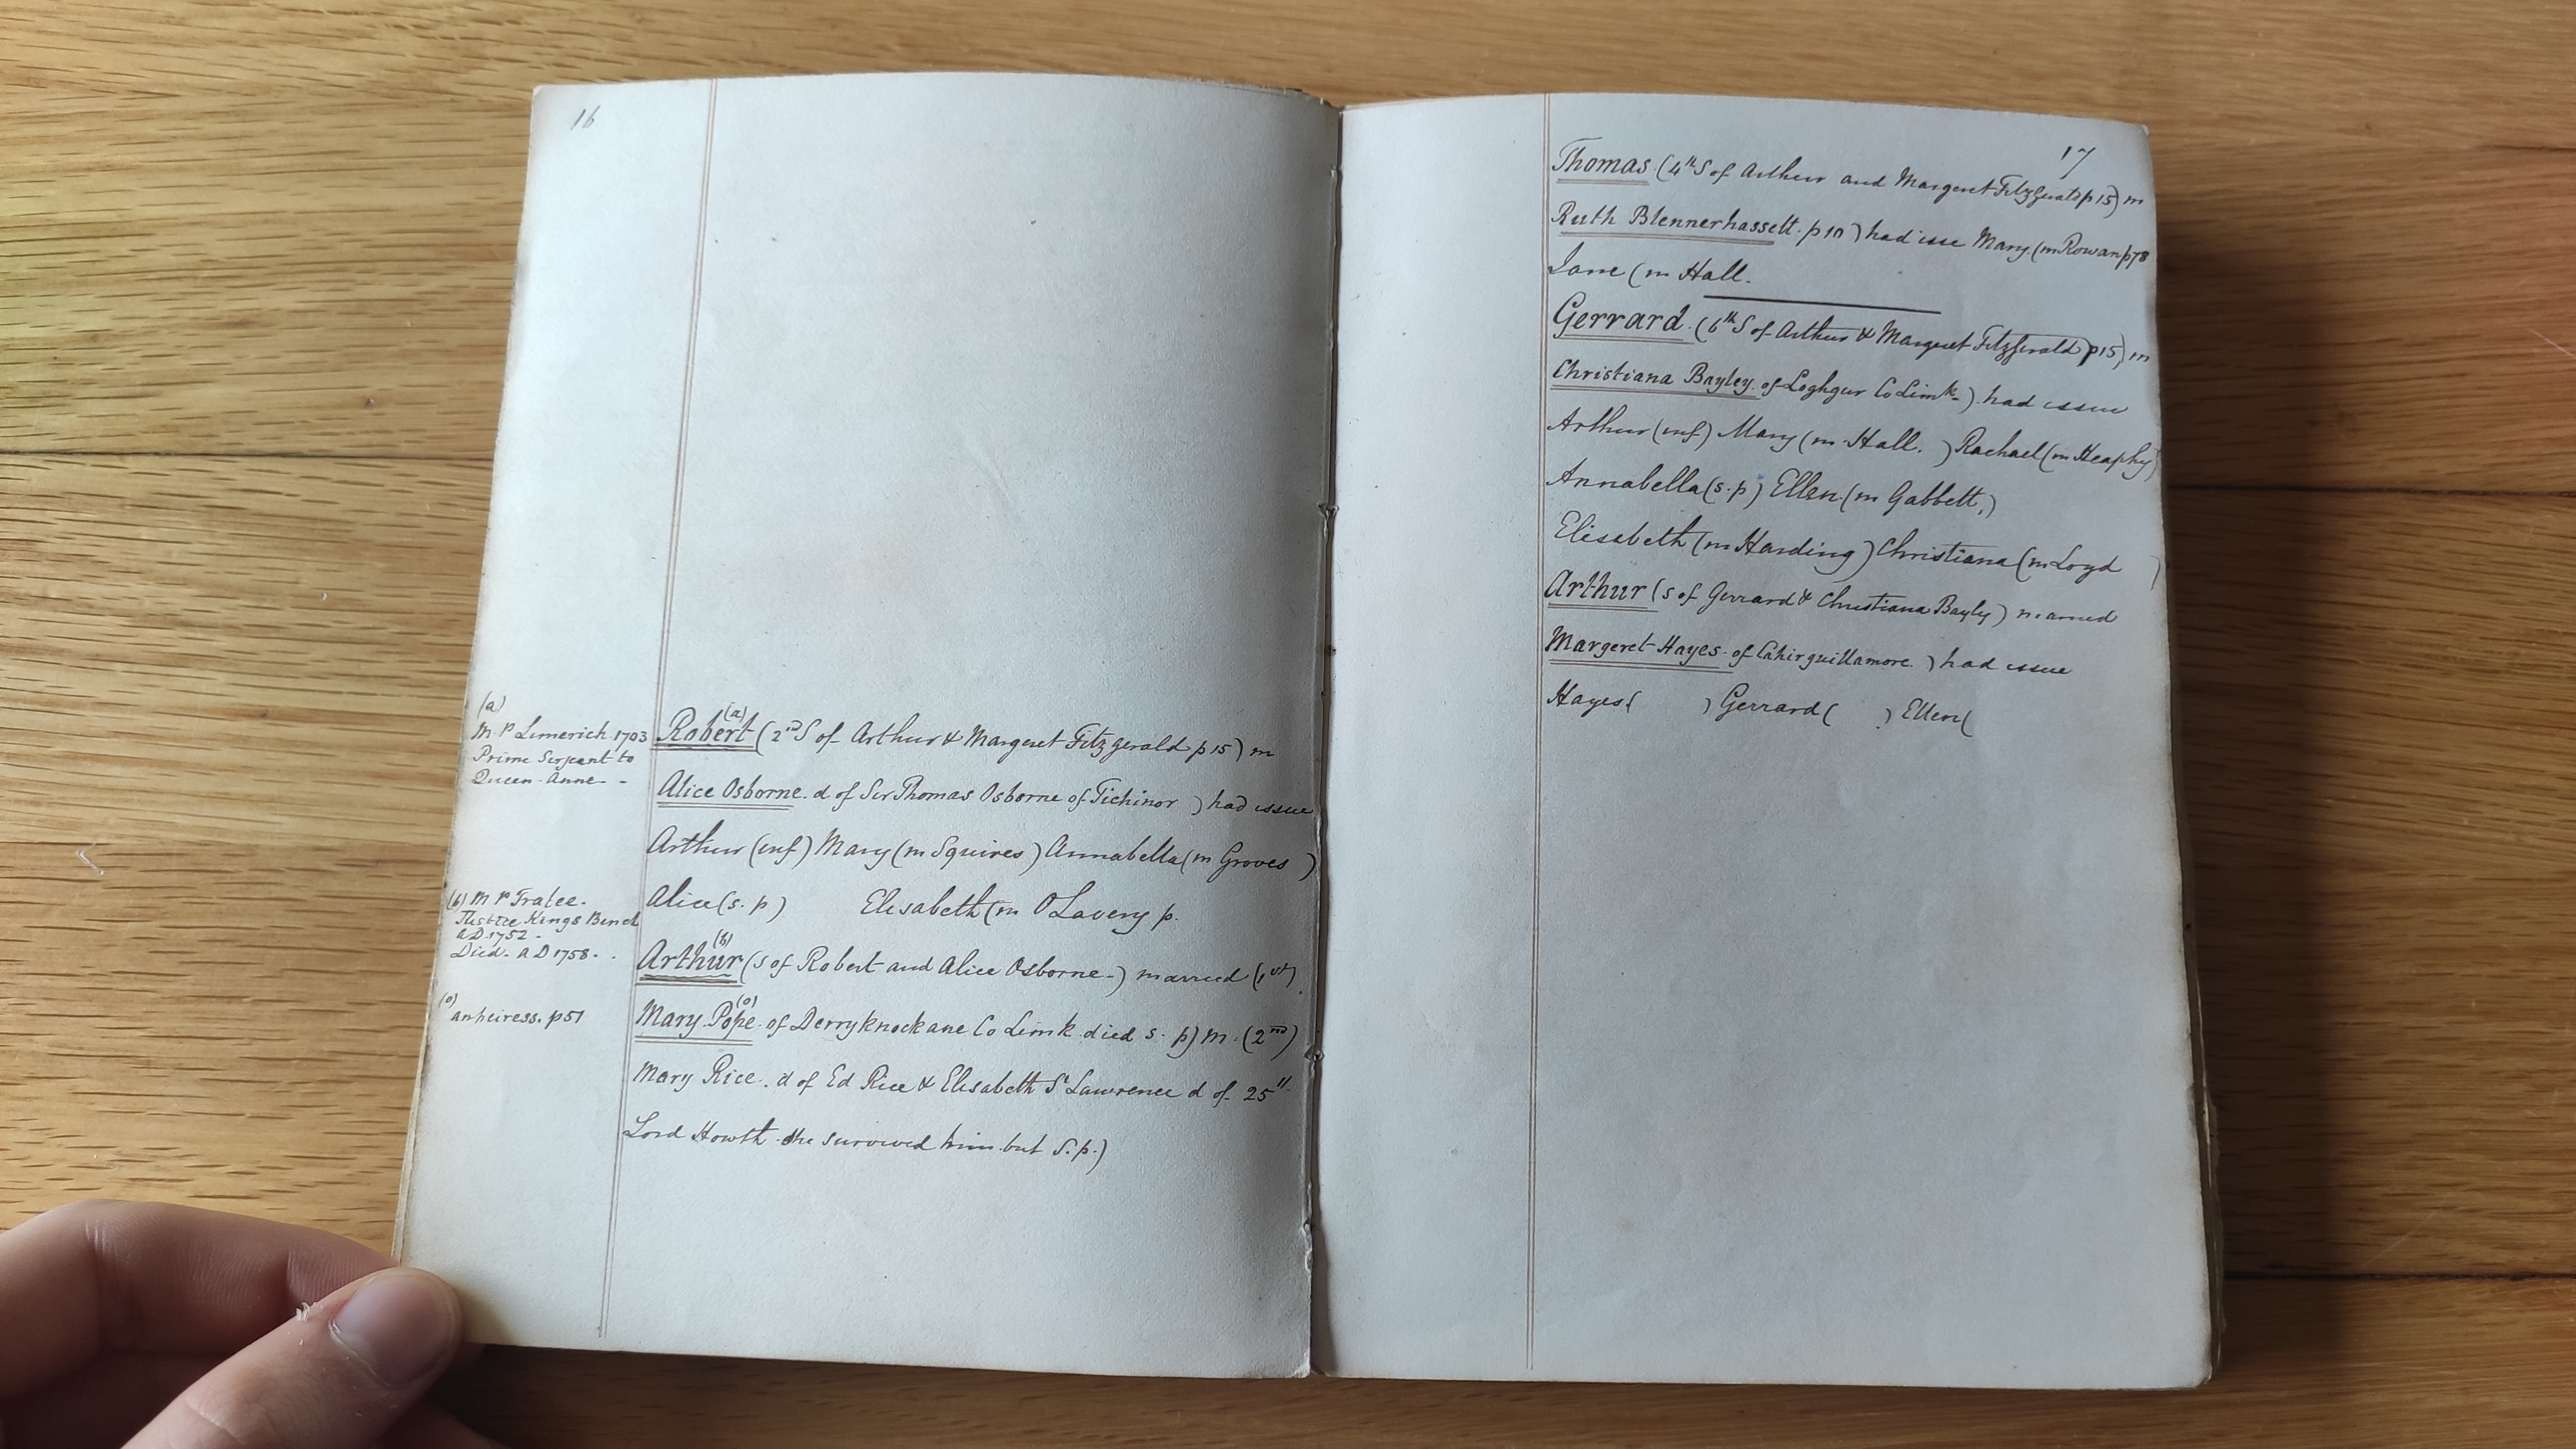 16
(a)
M.P Limerich 1703
Prime Serjeant to
Queen Anne - -
Robert (a) (2nd S of Arthur & Margeret Fitzgerald p 15) m
Alice Osborne d of Sir Thomas Osborne of Tichinor ) had issue
Arthur (inf) Mary (m Squires) Annabella (m Groves )
Alice (s. p) Elisabeth (m O Lavery p.
(b) M P Tralee.
Justice Kings Bench
AD 1752 -
Died. AD 1758. .
Arthur (b) (s of Robert and Alice Osborne-) married (1st)
(o) an heiress. p51
Mary Pope (o) of Derryknockane Co Limk died s. p) m. (2nd)
Mary Rice. d of Ed Rice & Elisabeth St Lawrence d of 25th
Lord Howth she survived him but S. p.)
17
Thomas (4th S of Arthur and Margeret Fitzgerald p 15) m
Ruth Blennerhassett. p 10 ) had isse Mary (m Rowan p78
Jane (m Hall.
Gerrard. (6th S of Arthur & Margeret Fitzgerald p 15) m
Christiana Bayley of Loghgur Co Limk-) had issue
Arthur (inf) Mary (m Hall. ) Rachael (m Heaphy)
Annabella (s. p) Ellen (m Gabbett,)
Elisabeth (m Harding) Christiana (m Loyd )
Arthur (s of Gerrard & Christiana Bayley) married
Margeret Hayes of Cahirguillamore. ) had issue
Hayes ( ) Gerrard ( ) Ellen (